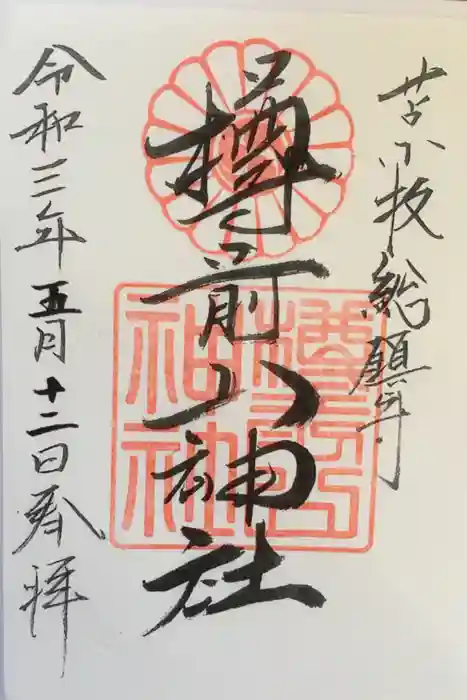 苫小牧総鎮守
樽前山神社
令和三年五月十二日奉拝
樽前山
神社